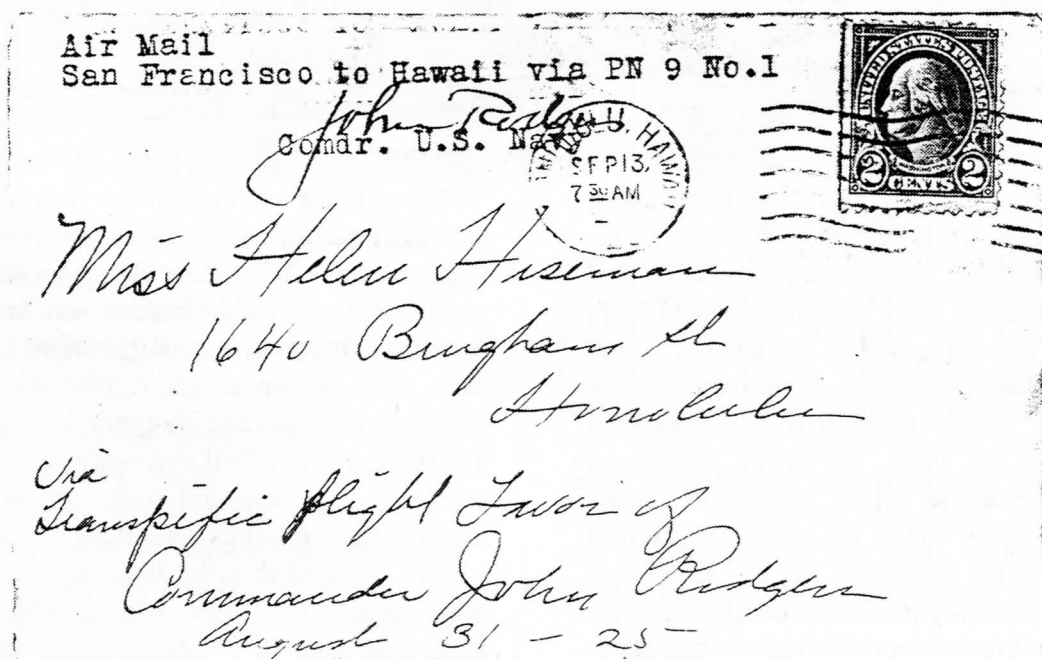 Air Mail
San Francisco to Hawaii via PN 9 No.1
John Rodgers
Comdr. U.S. Navy
HAWAII
SEP 13,
7 30 AM
UNITED STATES POSTAGE
2 CENTS 2
Miss Helen Hiseman
1640 Bingham St
Honolulu
Via
Transpific flight Favor of
Commander John Rodgers
August 31 - 25